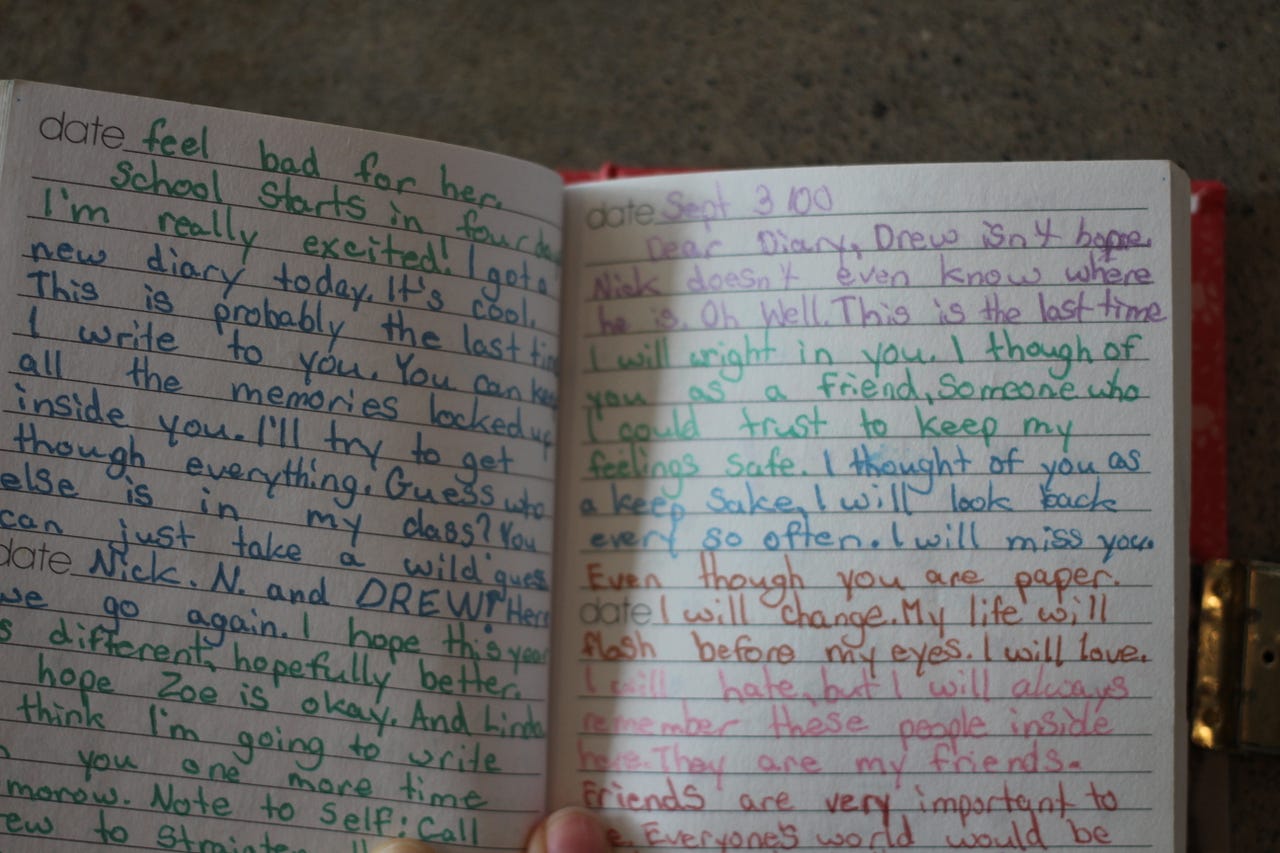 date feel bad for her.
School Starts in four da
I'm really excited! I got a
new diary today. It's cool.
This is probably the last tim
I write to you. You can kee
all the memories locked up
inside you. I'll try to get
though everything. Guess who
else is in my class? You
can just take a wild gues
date Nick. N. and DREW! Here
we go again. I hope this year
s different, hopefully better.
hope Zoe is okay. And Linda
think I'm going to write
you one more time
morow. Note to Self: Call
ew to
date Sept 3 00
Dear Diary, Drew isn't home.
Nick doesn't even know where
he is. Oh Well. This is the last time
I will wright in you. I though of
you as a friend, Someone who
I could trust to keep my
feelings safe. I thought of you as
a keep sake, I will look back
every so often. I will miss you.
Even though you are paper.
date I will change. My life will
flash before my eyes. I will love.
I will hate, but I will always
remember these people inside
here. They are my friends.
Friends are very important to
Everyone's world would be